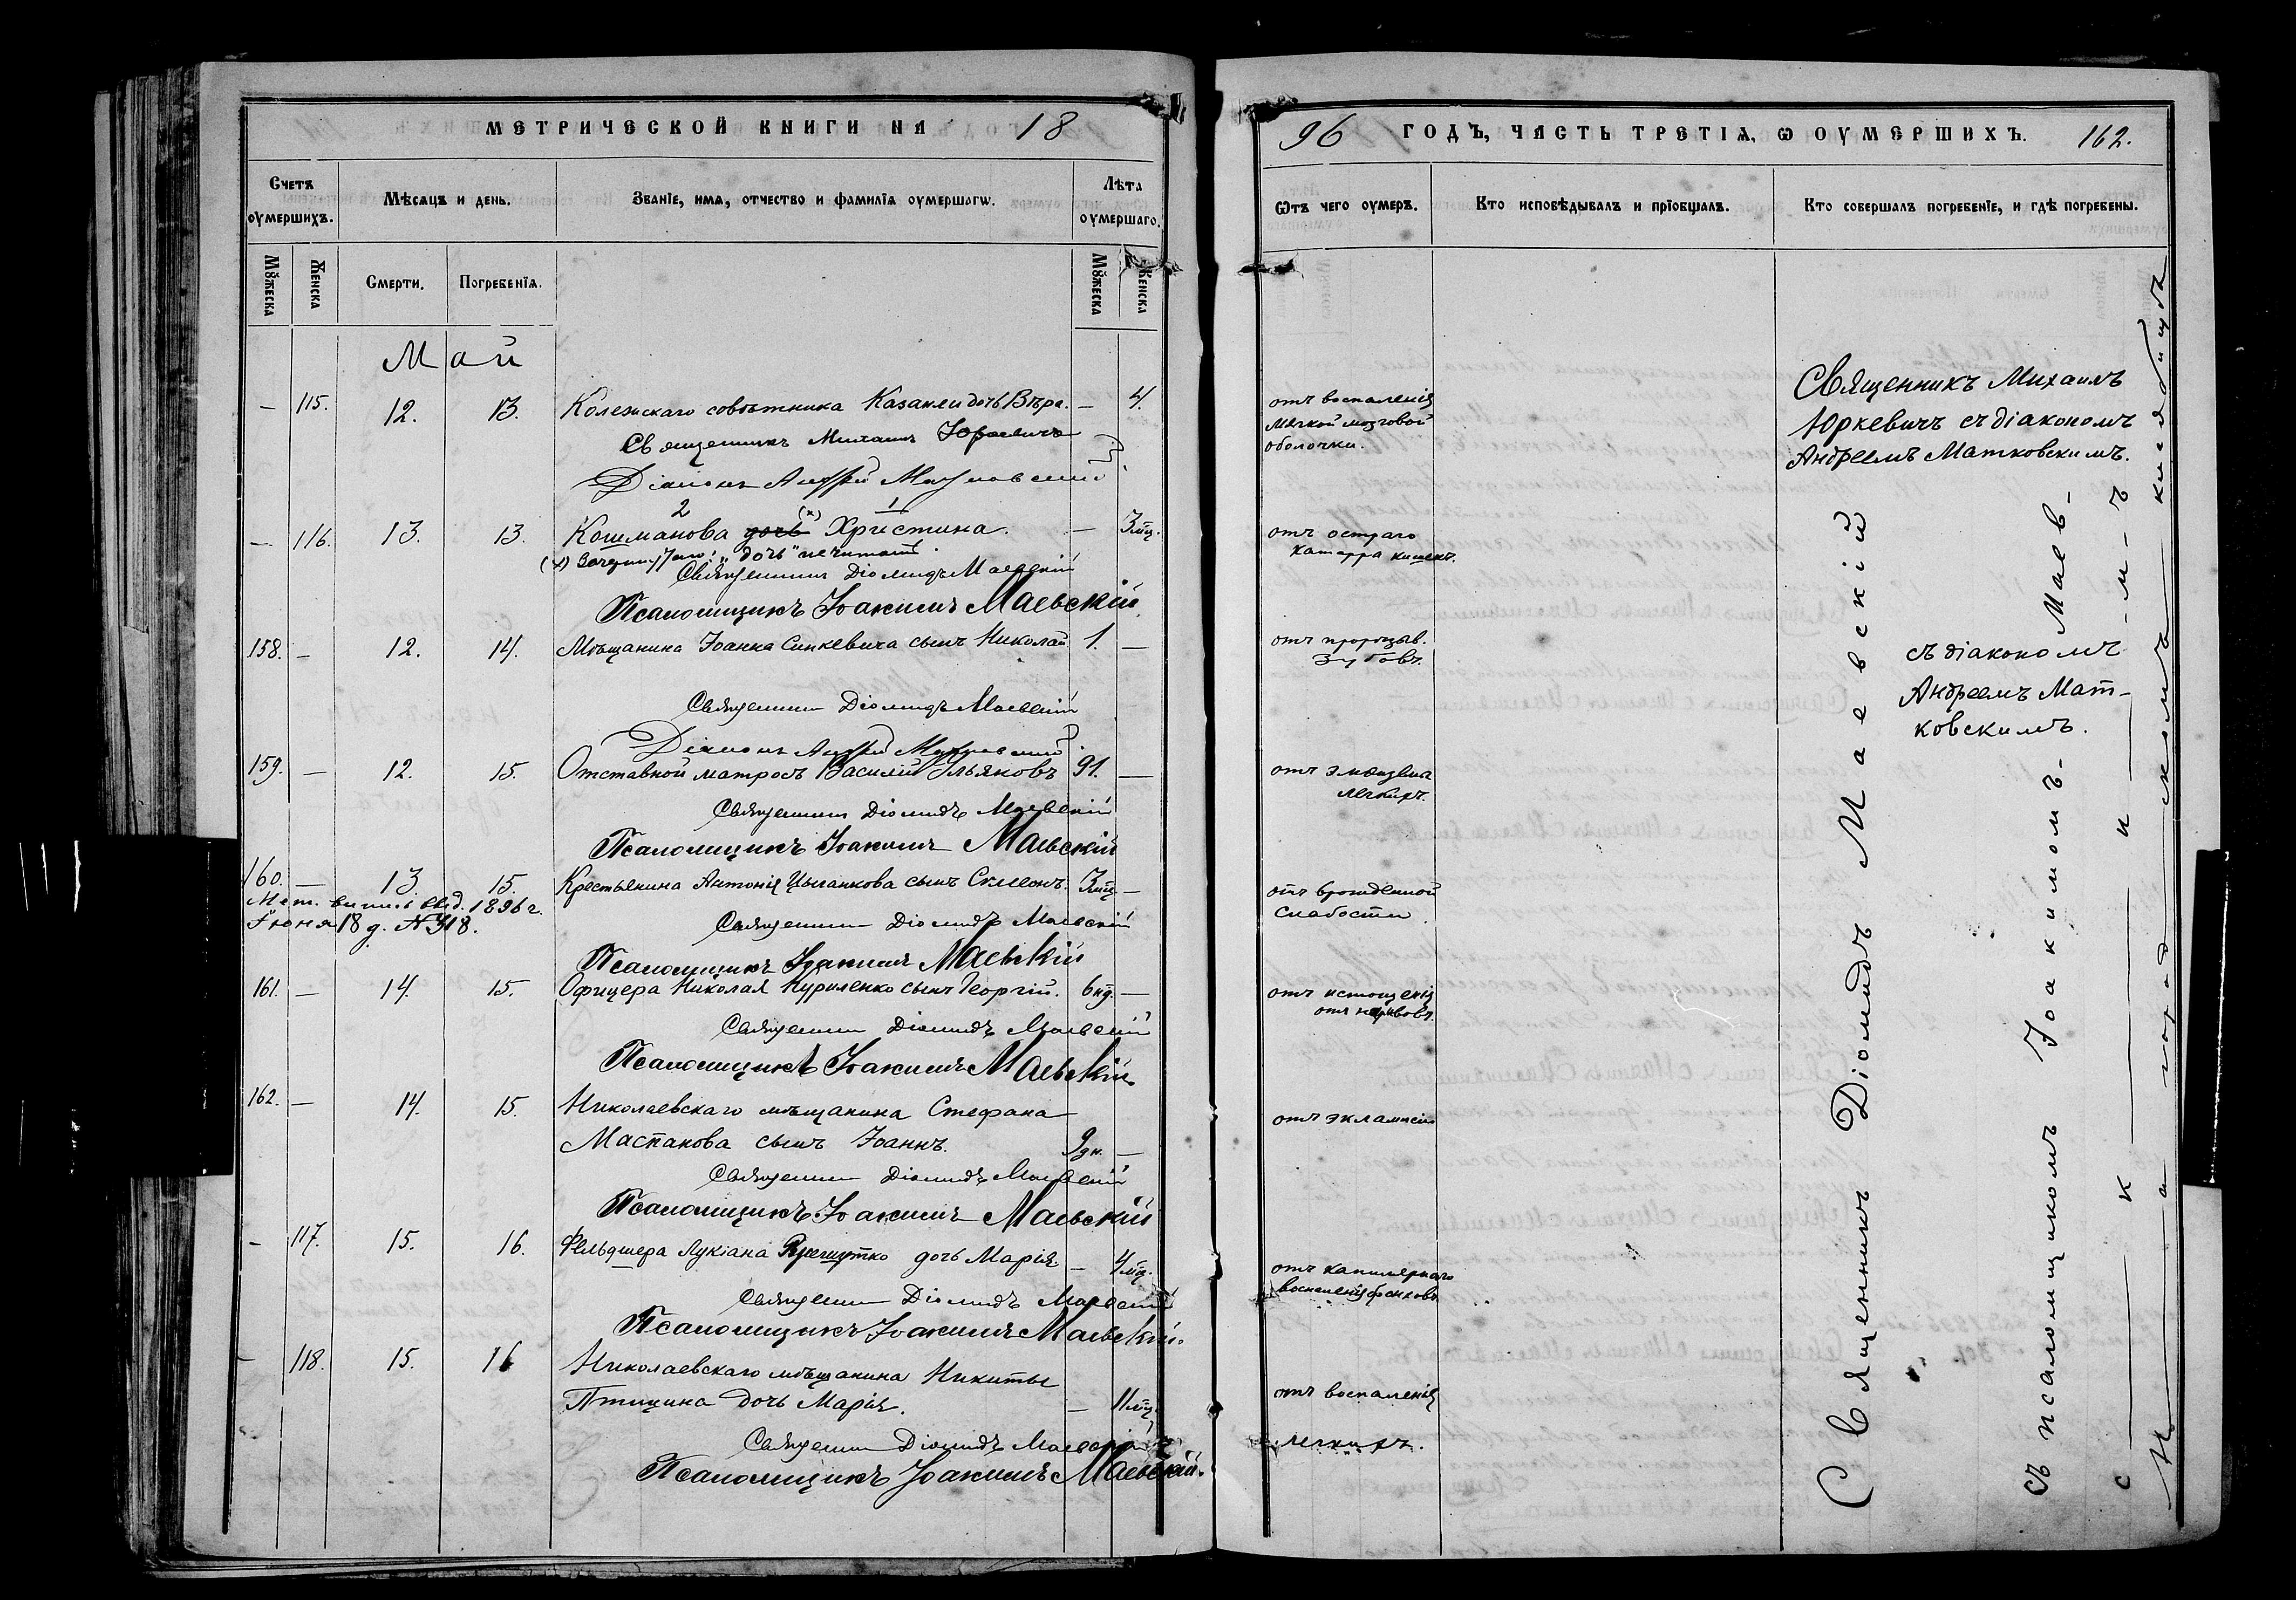 МЕТРИЧЕСКОЙ КНИГИ НА 18
Счетъ оумершихъ.
Мѣсяцъ и день.
Званіе, имя, отчество и фамилія оумершагѡ.
Лѣта оумершаго.
Мꙋжеска
Женска
Смерти.
Погребенія.
Мꙋжеска
Женска
Май
— 115. 12. 13. Колежскаго совѣтника Казакли дочь Вѣра. — 4.
Священникъ Михаилъ Юркевичъ
Діаконъ Андрей Матковский
2 (х) 1
— 116. 13. 13. Кошманова дочь Христина. — 3 мц.
(х) Зачеркнутаго: „дочь" не читать.
Священникъ Діомидъ Маевскій
Псаломщикъ Іоакимъ Маевскій
158. — 12. 14. Мѣщанина Іоанна Синкевича сынъ Николай 1. —
Священникъ Діомидъ Маевскій
Діаконъ Андрей Матковский
159. — 12. 15. Отставной матросъ Василій Ульяковъ 91. —
Священникъ Діомидъ Маевскій
Псаломщикъ Іоакимъ Маевскій
160. — 13. 15. Крестьянина Антонія Цыганкова сынъ Симеонъ. 3 мц —
Мет. выпись выд. 1896 г.
Іюня 18 д. № 318.
Священникъ Діомидъ Маевскій
Псаломщикъ Іоакимъ Маевскій
161. — 14. 15. Офицера Николая Куриленко сынъ Георгій. 6 нд. —
Священникъ Діомидъ Маевскій
Псаломщикъ Іоакимъ Маевскій.
162. — 14. 15. Николаевскаго мѣщанина Стефана
Маспанова сынъ Іоаннъ. 9 дн. —
Священникъ Діомидъ Маевскій
Псаломщикъ Іоакимъ Маевскій
— 117. 15. 16. Фельдшера Лукіана дочь Марія — 4 мц.
Священникъ Діомидъ Маевскій
Псаломщикъ Іоакимъ Маевскій.
— 118. 15. 16 Николаевскаго мѣщанина Никиты
Птицина дочь Марія. — 11 мц.
Священникъ Діомидъ Маевскій
Псаломщикъ Іоакимъ Маевскій.
96 ГОДЪ, ЧАСТЬ ТРЕТІЯ, Ѡ ОУМЕРШИХЪ. 162.
Ѿтъ чего оумеръ.
Кто исповѣдывалъ и пріобщалъ.
Кто совершалъ погребеніе, и гдѣ погребены.
отъ воспаленія
мягкой мозговой
оболочки.
отъ остраго
катарра кишекъ.
отъ прорѣзыв.
зубовъ.
отъ эмфизема
легкихъ.
отъ врожденной
слабости
отъ истощенія
отъ экламсіи
отъ капилярнаго
воспаленія бронховъ
отъ воспаленія
легкихъ.
Священникъ Михаилъ
Юркевичъ съ діакономъ
Андреемъ Матковскимъ.
Священникъ Діомидъ Маевскій
съ діакономъ
Андреемъ Мат-
ковскимъ.
съ псаломщикомъ Іоакимомъ Маев-
с—к—и—м—ъ
На городскомъ кладбищѣ